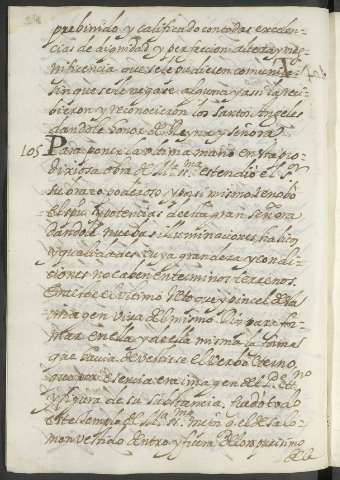 prebinido, y calificado con todas excelen-
cias de dignidad y perfeccion, de letra y mag-
nificencia que se le pudiesen comunicar
sin que se le negase alguna y assi la reci-
bieron y reconocieron los Santos Angeles
dandole honor de Reyna y Señora.
105 Para poner la ultima mano en esta pro-
digiosa obra de Maria SS.ma estendio el S.r
su brazo poderoso y por si mismo renobó
el Spu. y potencias de esta gran Señora
dandole nuebas illuminaciones, habitos
y qualidades, cuya grandeza y condi-
ciones no caben en terminos terrenos.
Era este el ultimo retoque y pincel de la
imagen viva del mismo Dios para for-
mar en ella y de ella misma la forma
que havia de vestirse el Verbo Eterno,
que por esencia era imagen del P.e Et.no
y figura de su substancia, quedó todo
este Templo de Maria SS.ma mejor que el de Salo-
mon vestido dentro y fuera de el oro purisimo
de la